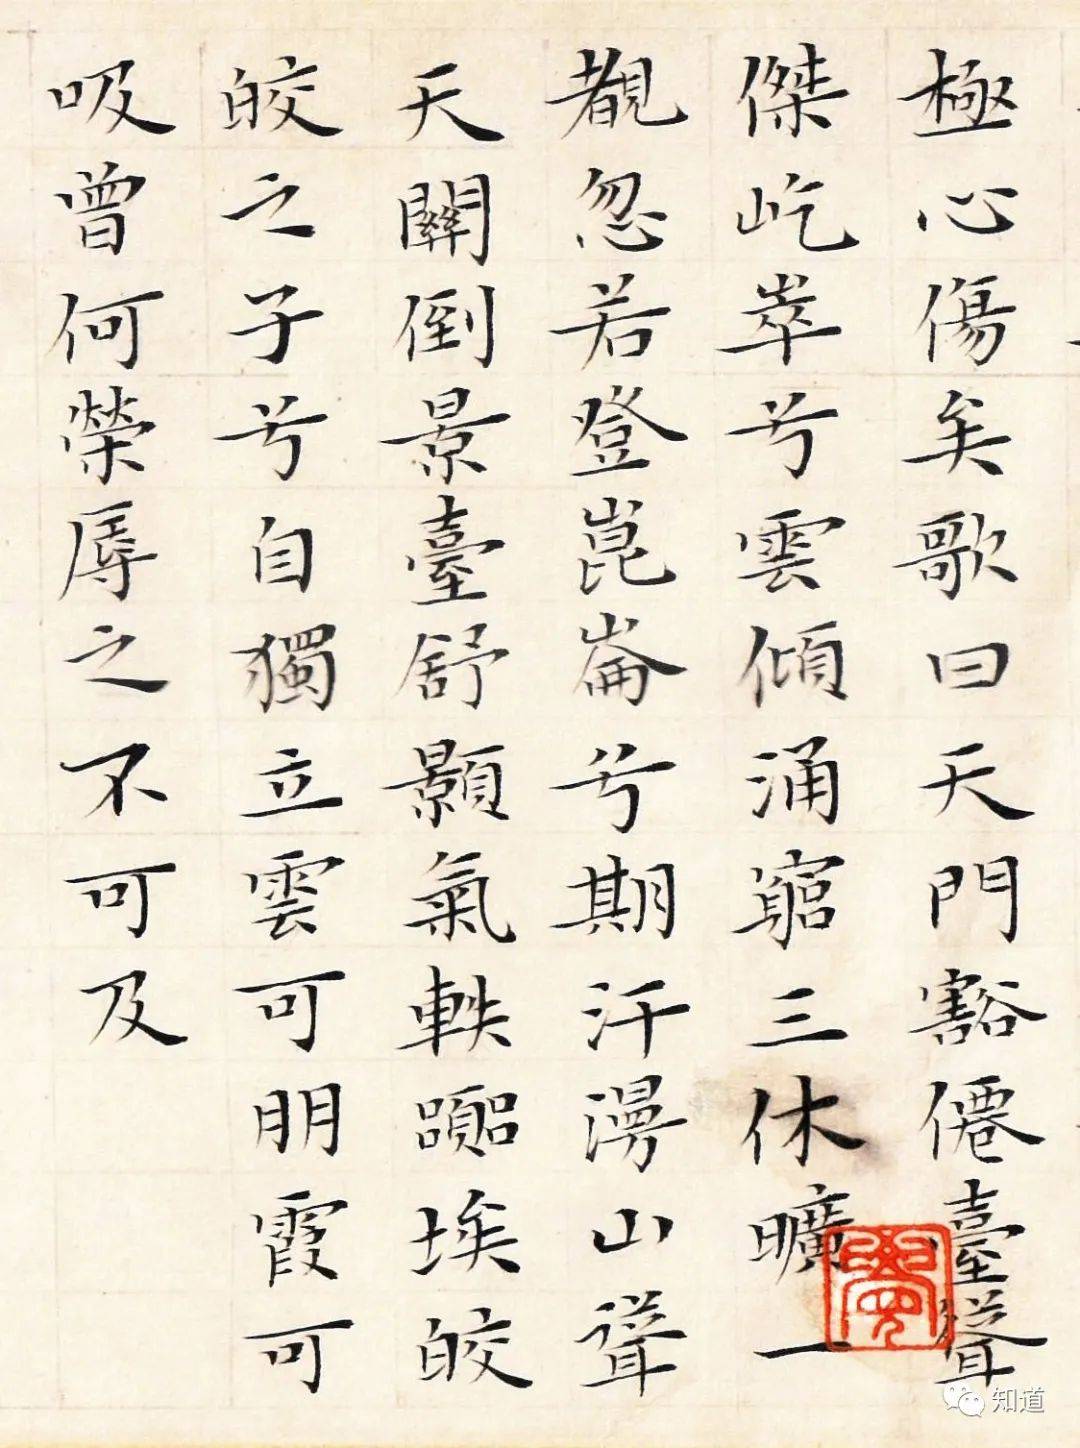 極心傷矣歌曰天門豁僊臺聳
傑屹崒兮雲傾涌窮三休曠一
覩忽若登崑崙兮期汗漫山聳
天關倒景臺舒顥氣軼囂埃皎
皎之子兮自獨立雲可朋霞可
吸曾何榮辱之不可及
知道